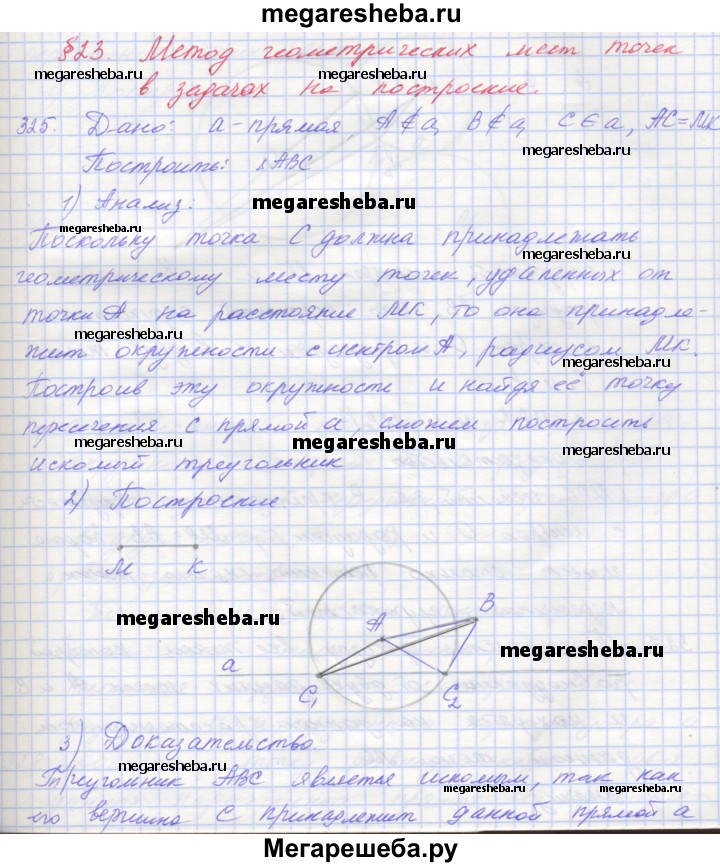 megaresheba.ru
§23 Метод геометрических мест точек
megaresheba.ru megaresheba.ru
в задачах на построение.
325. Дано: a - прямая, A∉a, B∉a, C∈a, AC=MK
Построить: ΔABC
megaresheba.ru megaresheba.ru
1) Анализ:
megaresheba.ru
megaresheba.ru
Поскольку точка C должна принадлежать
megaresheba.ru
геометрическому месту точек, удаленных от
точки A на расстояние MK, то она принадле-
megaresheba.ru
жит окружности с центром A, радиусом MK.
megaresheba.ru
Построив эту окружность и найдя её точку
пересечения с прямой a, сможем построить
megaresheba.ru megaresheba.ru megaresheba.ru
искомый треугольник
2) Построение
M K
megaresheba.ru
B
A
megaresheba.ru
a
C₁ C₂
3) Доказательство.
megaresheba.ru megaresheba.ru
Треугольник ABC является искомым, так как
megaresheba.ru megaresheba.ru
его вершина C принадлежит данной прямой a
Мегарешеба.ру